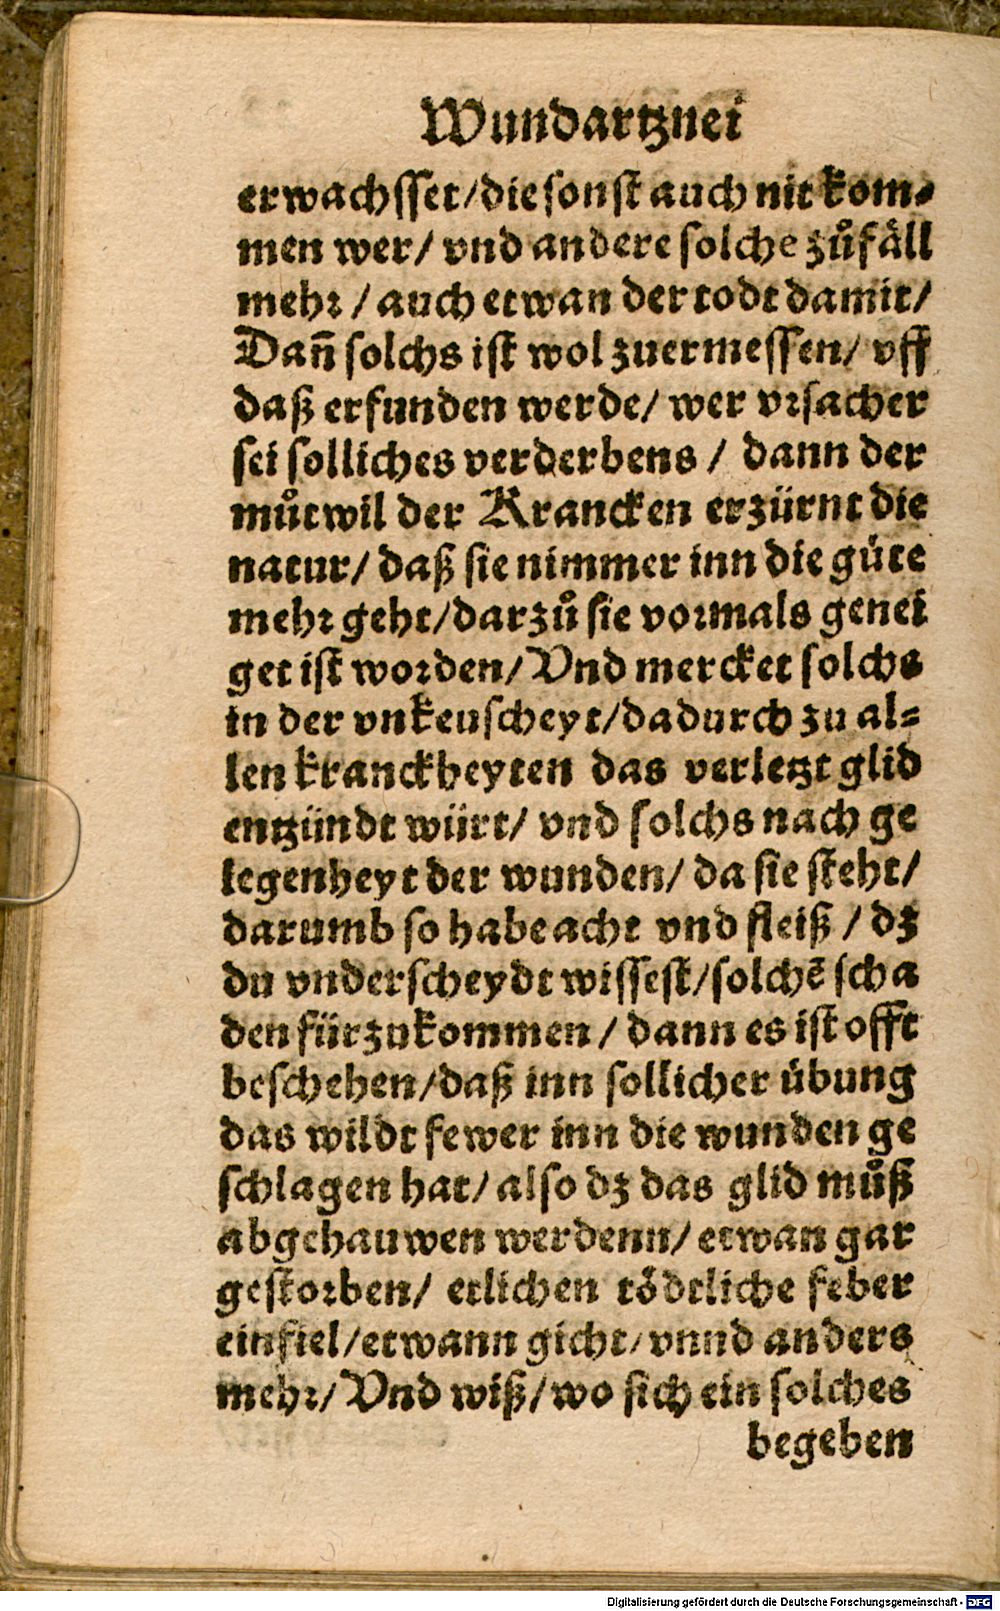 Wundartznei
erwachsset/die sonst auch nit kom-
men wer/ vnd andere solche zůfäll
mehr / auch etwan der todt damit/
Dañ solchs ist wol zuermessen/ vff
daß erfunden werde/ wer vrsacher
sei solliches verderbens / dann der
můtwil der Krancken erzürnt die
natur/ daß sie nimmer inn die güte
mehr geht/darzů sie vormals genei
get ist worden/ Vnd mercket solchs
in der vnkeuscheyt/dadurch zu al-
len kranckheyten das verletzt glid
entzündt würt/ vnd solchs nach ge
legenheyt der wunden/ da sie steht/
darumb so habe acht vnd fleiß / dz
du vnderscheydt wissest/solchē scha
den fürzukommen / dann es ist offt
beschehen/daß inn sollicher übung
das wildt fewer inn die wunden ge
schlagen hat/ also dz das glid můß
abgehauwen werdenn/ etwan gar
gestorben/ etlichen tödtliche feber
einfiel/etwann gicht/ vnnd anders
mehr/ Vnd wiß/wo sich ein solches
begeben
Digitalisierung gefördert durch die Deutsche Forschungsgemeinschaft - DFG